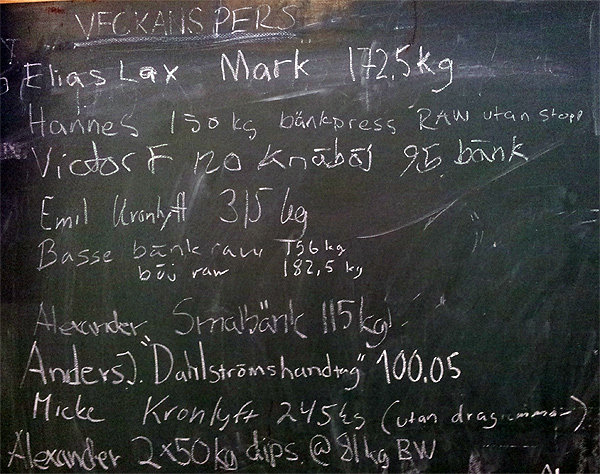 VECKANS PERS
Elias Lax Mark 172.5kg
Hannes 130 kg bänkpress RAW utan stopp
Victor F 120 Knäböj 95 bänk
Emil Kronlyft 315 kg
Basse bänk raw 156 kg
böj raw 182,5 kg
Alexander Smalbänk 115kg!
Anders J. "Dahlströmshandtag" 100.05
Micke Kronlyft 245kg (utan dragremmar)
Alexander 2x50kg dips @ 81kg BW